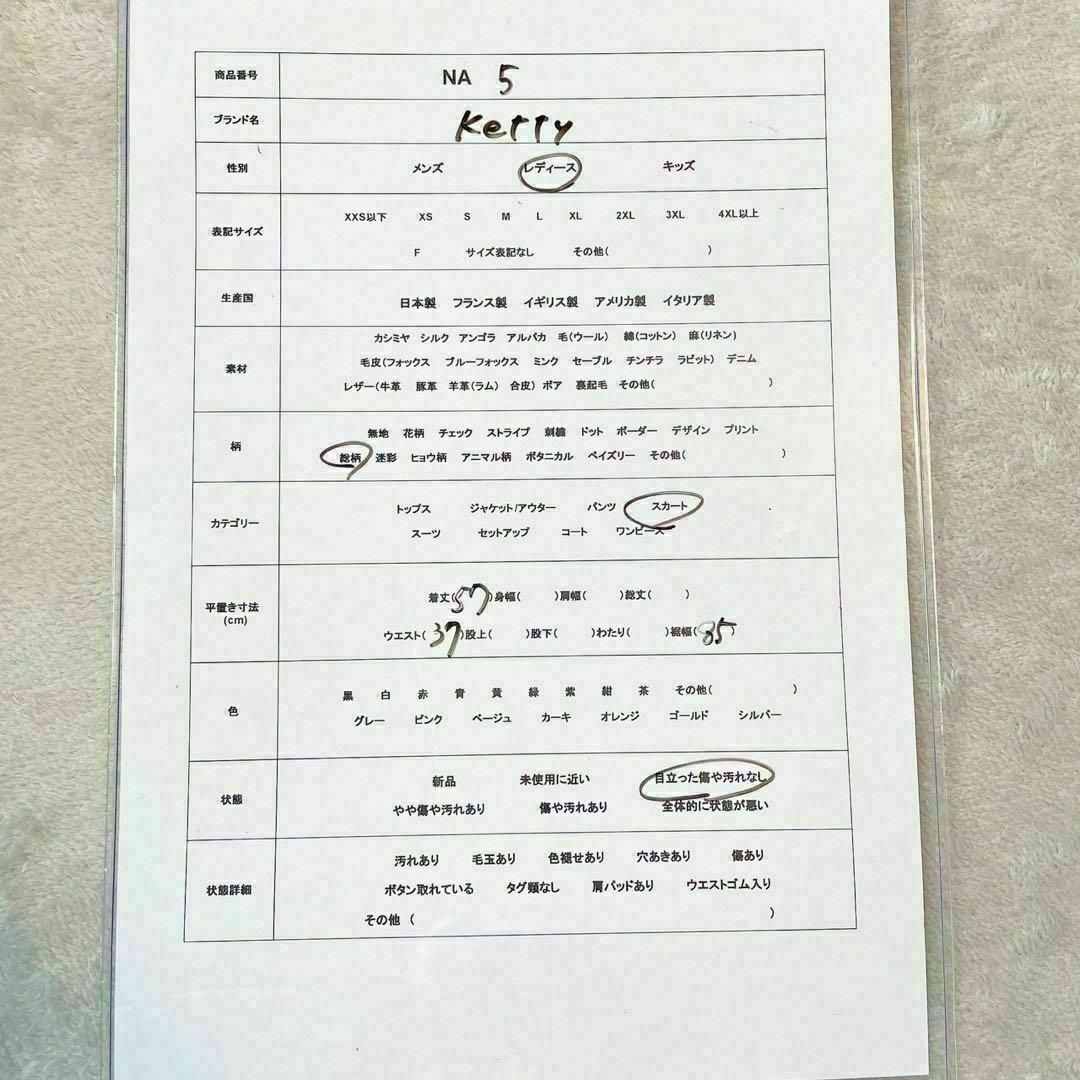 商品番号 NA 5
ブランド名 Ketty
性別 メンズ レディース キッズ
表記サイズ XXS以下 XS S M L XL 2XL 3XL 4XL以上
F サイズ表記なし その他( )
生産国 日本製 フランス製 イギリス製 アメリカ製 イタリア製
素材 カシミヤ シルク アンゴラ アルパカ 毛(ウール) 綿(コットン) 麻(リネン)
毛皮(フォックス ブルーフォックス ミンク セーブル チンチラ ラビット) デニム
レザー(牛革 豚革 羊革(ラム) 合皮) ボア 裏起毛 その他( )
柄 無地 花柄 チェック ストライプ 刺繍 ドット ボーダー デザイン プリント
総柄 迷彩 ヒョウ柄 アニマル柄 ボタニカル ペイズリー その他( )
カテゴリー トップス ジャケット/アウター パンツ スカート
スーツ セットアップ コート ワンピース
平置き寸法 (cm) 着丈(57)身幅( )肩幅( )総丈( )
ウエスト(37)股上( )股下( )わたり( )裾幅(85)
色 黒 白 赤 青 黄 緑 紫 紺 茶 その他( )
グレー ピンク ベージュ カーキ オレンジ ゴールド シルバー
状態 新品 未使用に近い 目立った傷や汚れなし
やや傷や汚れあり 傷や汚れあり 全体的に状態が悪い
状態詳細 汚れあり 毛玉あり 色褪せあり 穴あきあり 傷あり
ボタン取れている タグ類なし 肩パッドあり ウエストゴム入り
その他 ( )